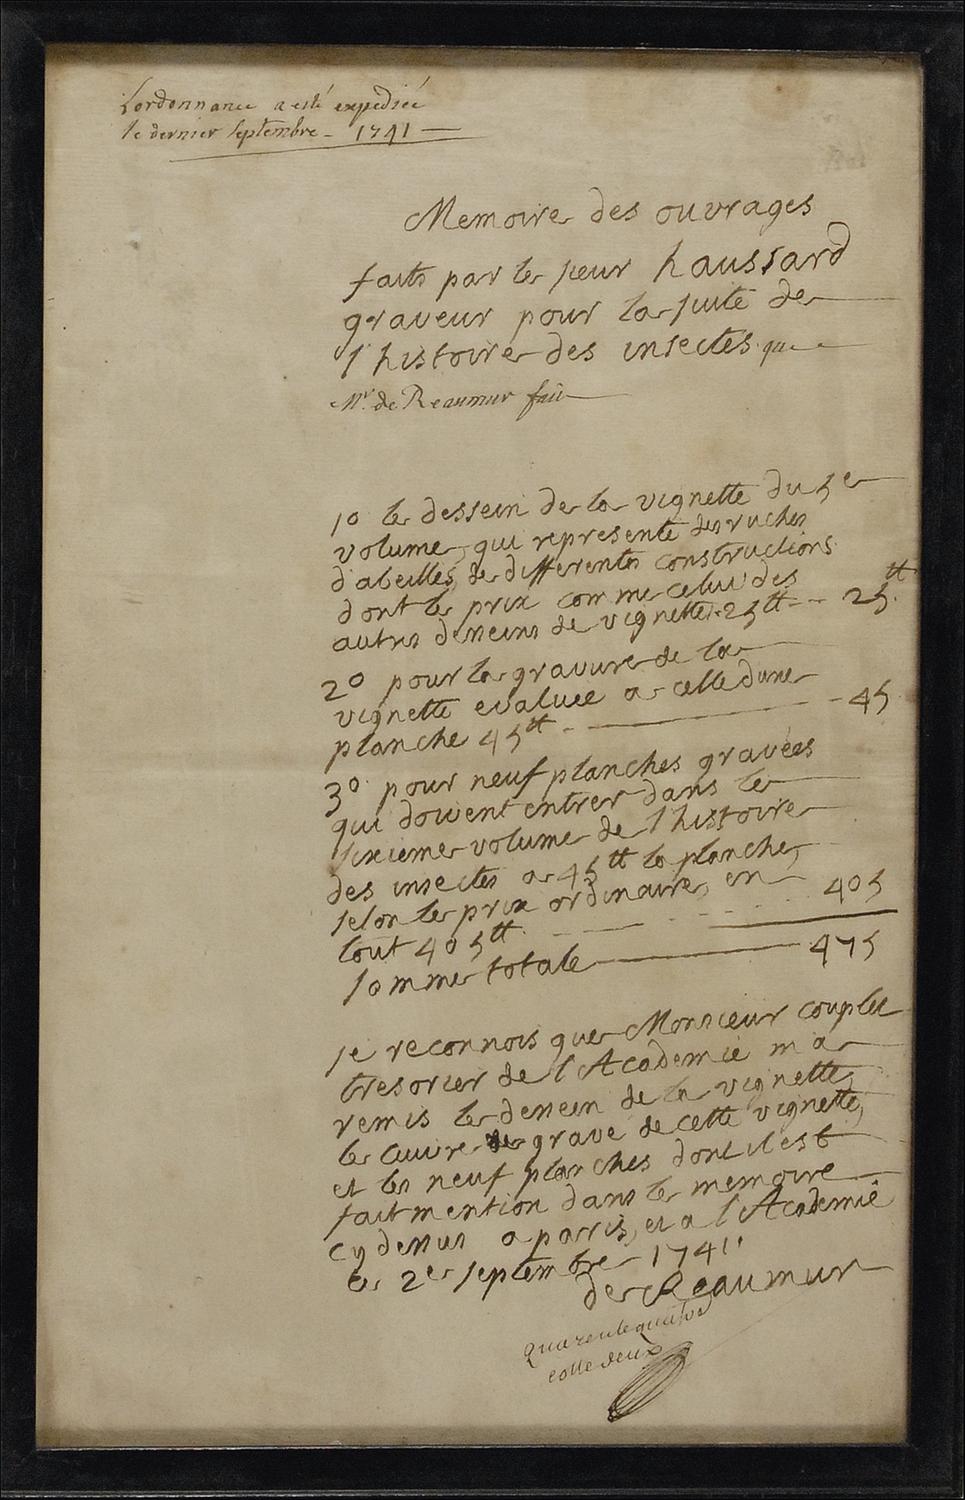 L'ordonnance a esté expediée
le dernier septembre - 1741 -
Memoire des ouvrages
faits par le sieur haussard
graveur pour la suite de
l'histoire des insectes que
Mr. de Reaumur fait
1º le dessein de la vignette du 5e
volume, qui represente des ruches
d'abeilles, de differentes constructions
dont le prix comme celui des
autres desseins de vignettes 25tt -- 25tt
2º pour la gravure de la
vignette evaluee a celle dune
planche 45tt - 45
3º pour neuf planches gravées
qui doivent entrer dans le
sixieme volume de l'histoire
des insectes a 45tt la planche,
selon le prix ordinaire, en
tout 405tt. 405
somme totale 475
je reconnois que Monsieur couplet
tresorier de l'Academie m'a
remis le dessein de la vignette,
le cuivre grave de cette vignette,
et les neuf planches dont il est
fait mention dans le memoire
cy dessus a parris, et a l'Academie
le 2e septembre 1741
de Reaumur
cotte deux